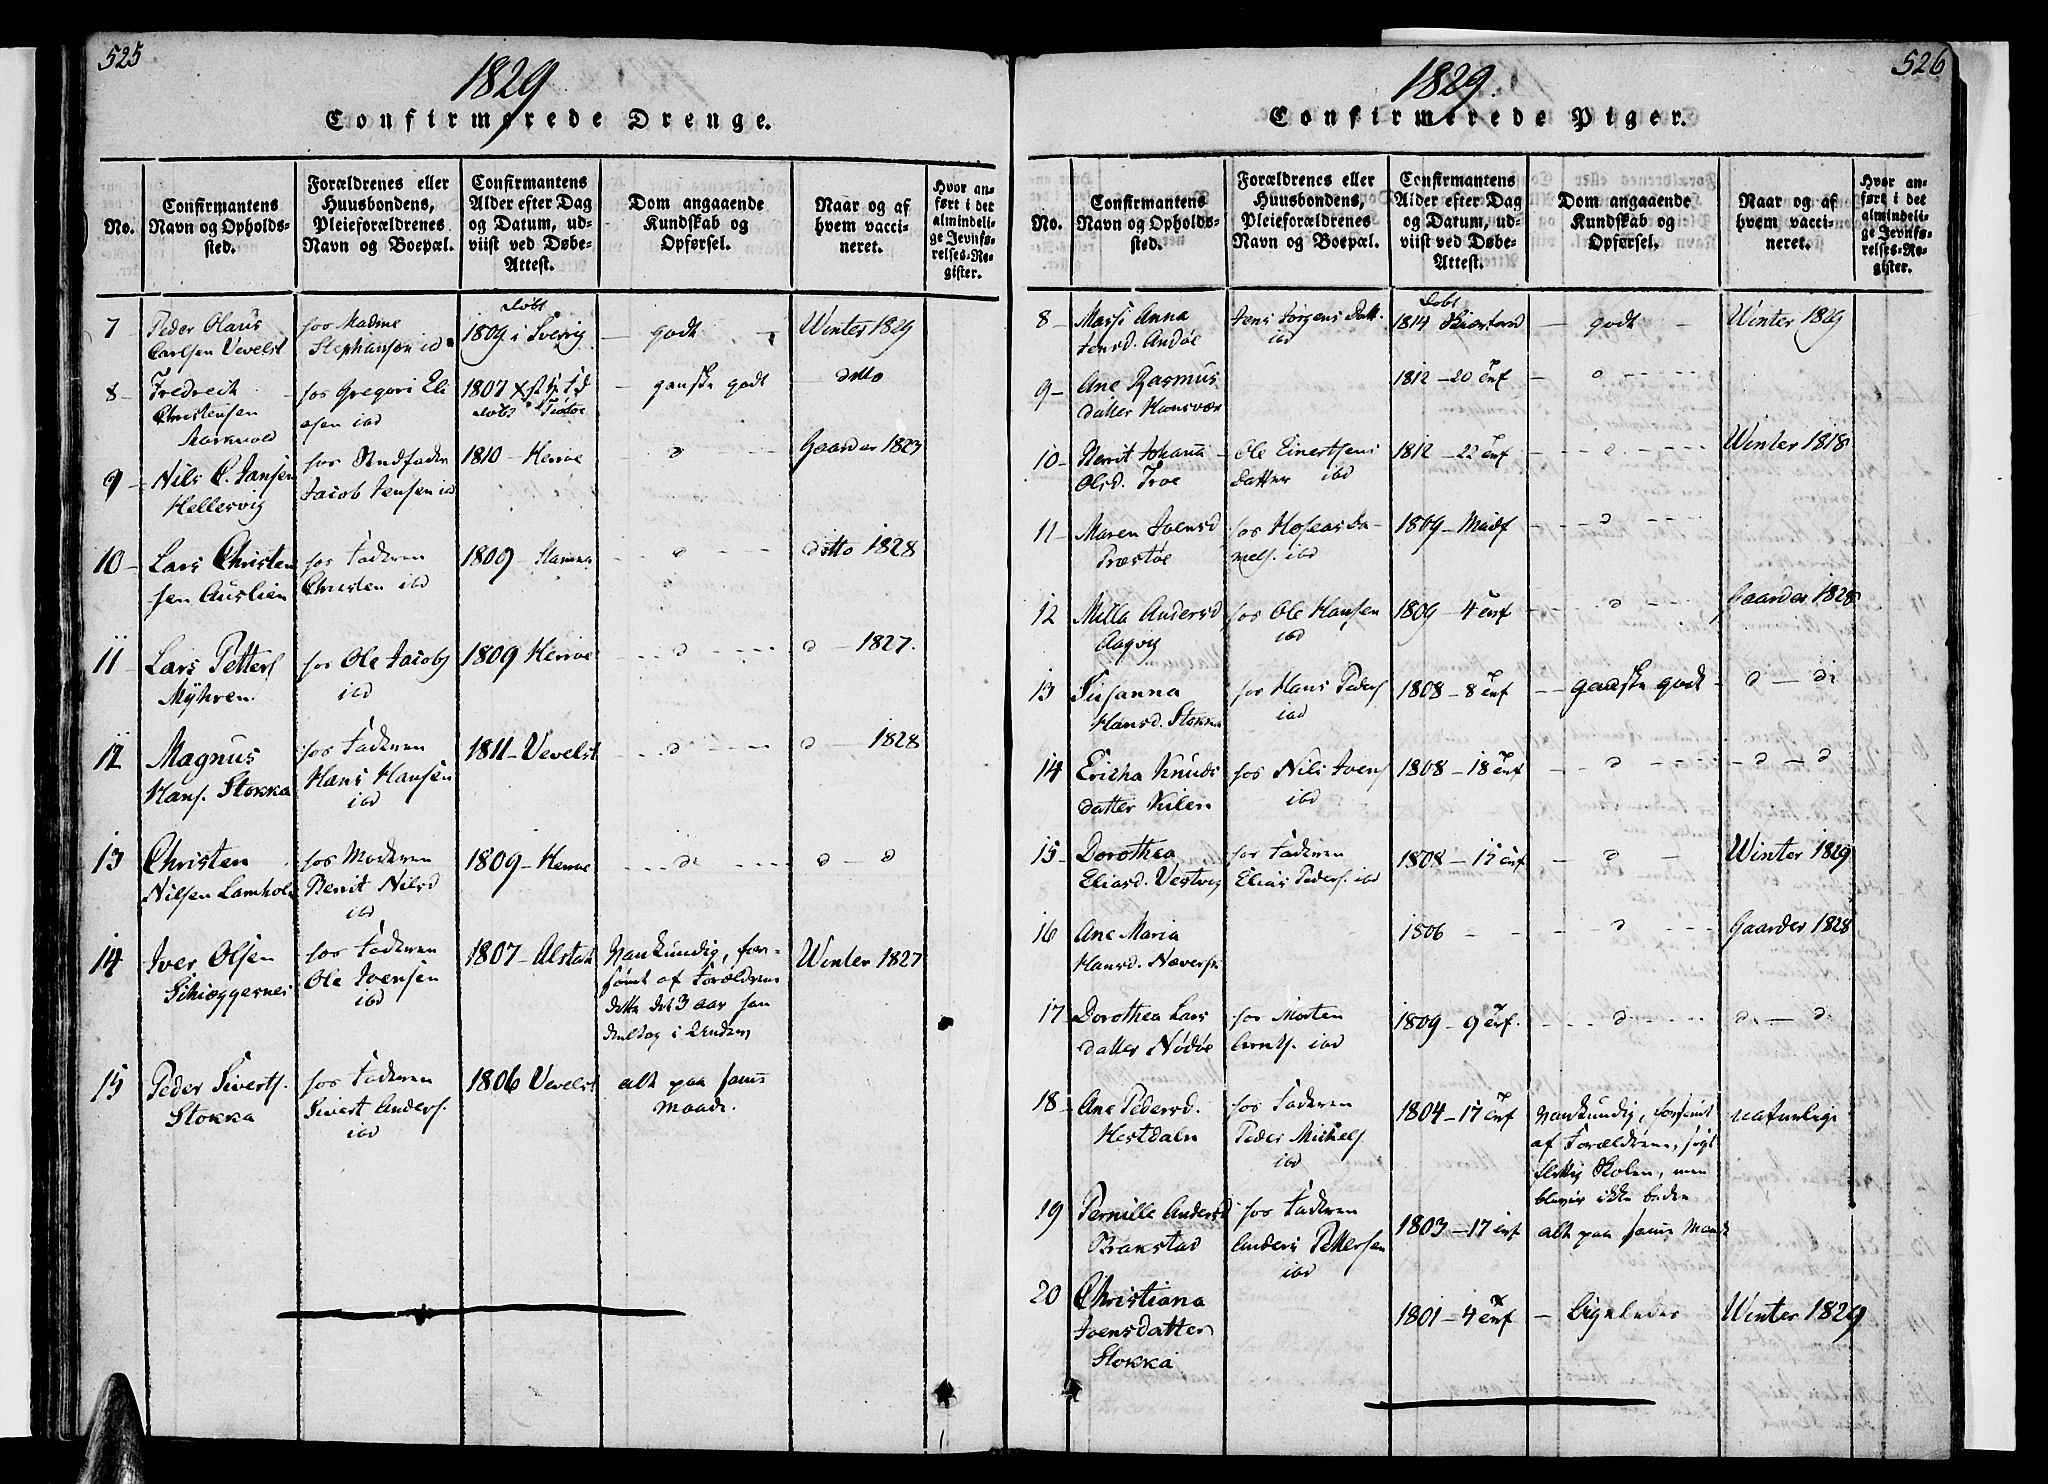 525
1829
Confirmerede Drenge.
No.
Confirmantens
Navn og Opholds-
sted.
Forældrenes eller
Huusbondens,
Pleieforældrenes
Navn og Boepæl.
Confirmantens
Alder efter Dag
og Datum, ud-
viist ved Døbe-
Attest.
Dom angaaende
Kundskab og
Opførsel.
Naar og af
hvem vacci-
neret.
Hvor an-
ført i det
almindeli-
ge Jevnfø-
relses-Re-
gister.
7
Peder Olaus
Carlsen Vevelst
hos Madme
Stephansen ibd
døbt
1809 i Sverrig
godt
Winter 1829
8
Fredrech
Christensen
hos Gregori Eli
asen ibd
1807
døbt
ganske godt
ditto
9
Nils C. Jansen
Hellesvig
hos
Jacob Jensen ibd
1810 - Herrøe
d
Gaarder 1823
10
Lars Christen
sen Auslien
hos Faderen
Christen ibd
1809
d
ditto 1828
11
Lars Petters
Mÿhren
hos Ole Jacobs
ibd
1809 Herrøe
d
d - 1827.
12
Magnus
Hans. Stokka
hos Faderen
Hans Hansen
ibd
1811 - Vevelst
d
d - 1828
13
Christen
Nilsen Lamhol
hos Moderen
Berrit Nilsd
ibd
1809 - Herrøe
d
d - d
14
Iver Olsen
hos Faderen
Ole Iversen
ibd
1807 - Alstah
Vankundig, for-
sömt af Forældrene
dette det 3 aar han
deeltog i Underv,
Winter 1827
15
Peder Siverts.
Stokka
hos Faderen
Sivert Anders.
ibd
1806 Vevelst
alt paa samme
maade.
526
1829.
Confirmerede Piger.
No.
Confirmantens
Navn og Opholds-
sted.
Forældrenes eller
Huusbondens,
Pleieforældrenes
Navn og Boepæl.
Confirmantens
Alder efter Dag
og Datum, ud-
viist ved Døbe-
Attest.
Dom angaaende
Kundskab og
Opførsel.
Naar og af
hvem vacci-
neret.
Hvor an-
ført i det
almindeli-
ge Jevnfø-
relses-Re-
gister.
8
Massi Anna
Jensd. Andøe
Jens Jørgens Datt.
ibd
døbt
1814
godt
Winter 1819
9
Ane Rasmus
datter Hansvær
1812 - 20
d
10
Berrit Johana
Olsd. Troe
Ole Einertsens
Datter ibd
1812 - 22
d
Winter 1818
11
Maren Ivensd
Præstøe
hos Hoseas Da-
niels. ibd
1809
d
12
Milla Andersd
Aagvig
hos Ole Hansen
ibd
1809 - 4
d
Gaarder 1828
13
Susanna
Hansd. Stokka
hos Hans Peders
ibd
1808 - 8
ganske godt
d - d
14
Ericha Knuds
datter Kilen
hos Nils Ivers
ibd
1808 - 18
d
d - d
15
Dorothea
Eliasd. Vestvig
hos Faderen
Elias Peders. ibd
1808 - 15
d
Winter 1829
16
Ane Maria
Hansd.
1806
d
Gaarder 1828
17
Dorothea Lars
datter Nødøe
hos Morten
Arnts. ibd
1809 - 9
d
d - d
18
Ane Pedersd.
Hestdaln
hos Faderen
Peder Michels
ibd
1804 - 17
Vankundig, forsömt
af Forældrene, søgt
flittig Skolen, men
blever ikke bedre
naturlige
19
Pernille Andersd
Brakstad
hos Faderen
Anders Pettersen
ibd
1803 - 17
alt paa samme Maade
20
Christiana
Ivensdatter
Stokka
1801 - 4
Ligeledes
Winter 1829